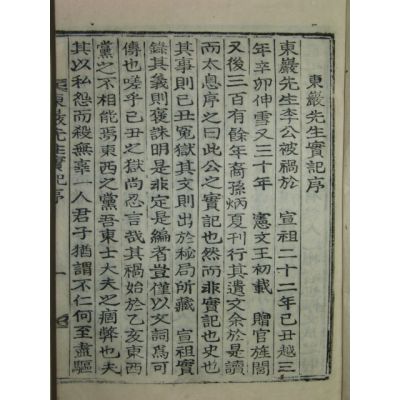 東巖先生實記序
東巖先生李公被禍於 宣祖二十二年己丑越三
年辛卯伸雪又三十年 憲文王初載 贈官旌閭
又後三百有餘年裔孫炳夏刊行其遺文余於是讀
而太息序之曰此公之實記也然而非實記也史也
其事則己丑冤獄其文則出於秘局所藏 宣祖實
錄其義則褒誅明是非定是編者豈僅以文詞爲可
傳也嗟乎己丑之獄尚忍言哉其禍始於乙亥東西
黨之不相能焉東西之黨吾東士大夫之痼弊也夫
其以私怨而殺無辜一人君子猶謂不仁何至盡驅
東巖先生實記序 一